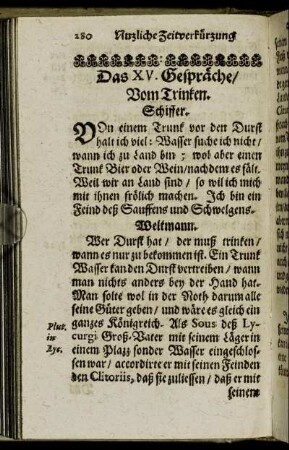 280 Nuzliche Zeitverkürzung
Das XV. Gespräche/
Vom Trinken.
Schiffer.
VOn einem Trunk vor den Durst
halt ich viel: Wasser suche ich nicht/
wann ich zu Land bin; wol aber einen
Trunk Bier oder Wein/nachdem es fält.
Weil wir an Land sind/ so wil ich mich
mit ihnen frölich machen. Ich bin ein
Feind deß Sauffens und Schwelgens.
Weltmann.
Wer Durst hat/ der muß trinken/
wann es nur zu bekommen ist. Ein Trunk
Wasser kan den Durst vertreiben/ wann
man nichts anders bey der Hand hat.
Man solte wol in der Noth darum alle
seine Güter geben/ und wäre es gleich ein
Plut. in Lyc.
ganzes Königreich. Als Sous deß Ly-
curgi Groß-Vater mit seinem Läger in
einem Plazz sonder Wasser eingeschlos-
sen war/ accordirte er mit seinen Feinden
den Clitoriis, daß sie zuliessen/ daß er mit
seinem